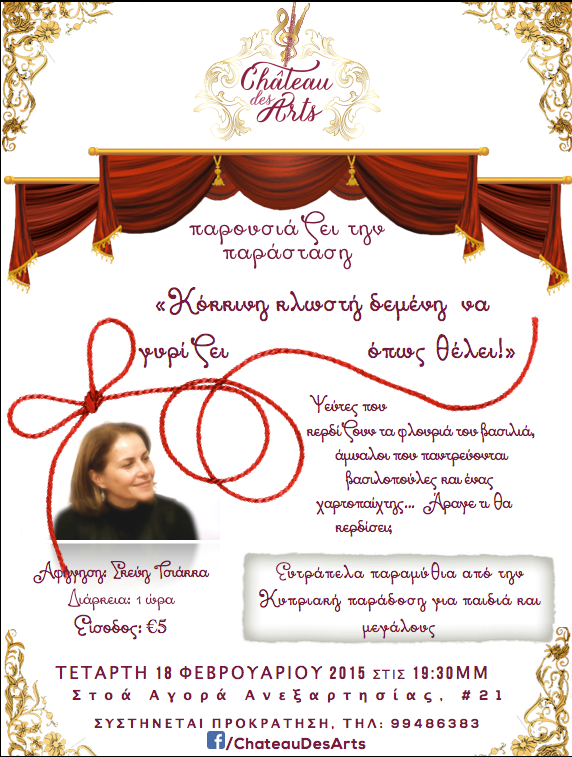 Château
des
Arts
παρουσιάζει την
παράσταση
«Κόκκινη κλωστή δεμένη να
γυρίζει όπως θέλει!»
Ψεύτες που
κερδίζουν τα φλουριά του βασιλιά,
άμυαλοι που παντρεύονται
βασιλοπούλες και ένας
χαρτοπαίχτης... Άραγε τι θα
κερδίσει;
Αφήγηση: Σκεύη Τσιάκκα
Διάρκεια: 1 ώρα
Είσοδος: €5
Ευτράπελα παραμύθια από την
Κυπριακή παράδοση για παιδιά και
μεγάλους
ΤΕΤΑΡΤΗ 18 ΦΕΒΡΟΥΑΡΙΟΥ 2015 ΣΤΙΣ 19:30ΜΜ
Στοά Αγορά Ανεξαρτησίας, #21
ΣΥΣΤΗΝΕΤΑΙ ΠΡΟΚΡΑΤΗΣΗ, ΤΗΛ: 99486383
f/ChateauDesArts